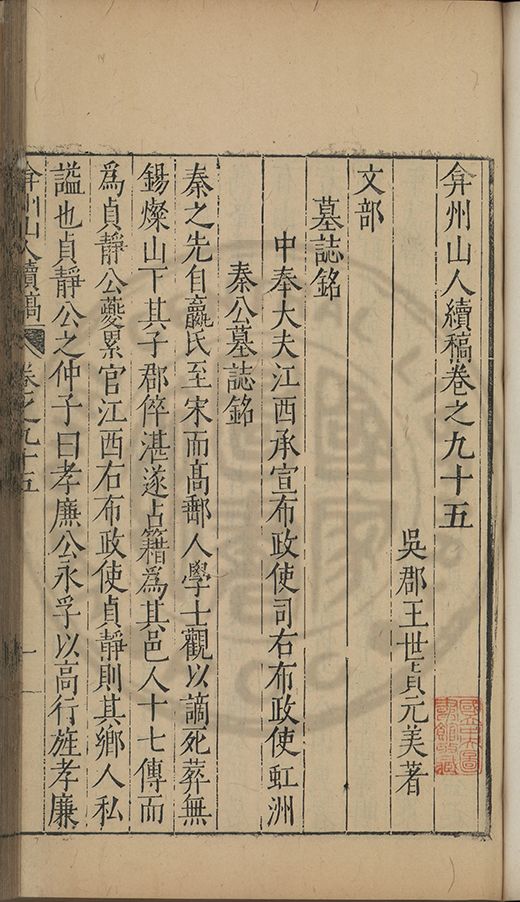 弇州山人續稿卷之九十五
吳郡王世貞元美著
文部
墓誌銘
中奉大夫江西承宣布政使司右布政使虹洲
秦公墓誌銘
秦之先自嬴氏至宋而高郵人學士觀以謫死葬無
錫燦山下其子郡倅湛遂占籍爲其邑人十七傳而
爲貞靜公夔累官江西右布政使貞靜則其鄉人私
謚也貞靜公之仲子曰孝廉公永孚以高行旌孝廉
弇州山人續稿 卷之九十五 一
國立中央圖書館收藏